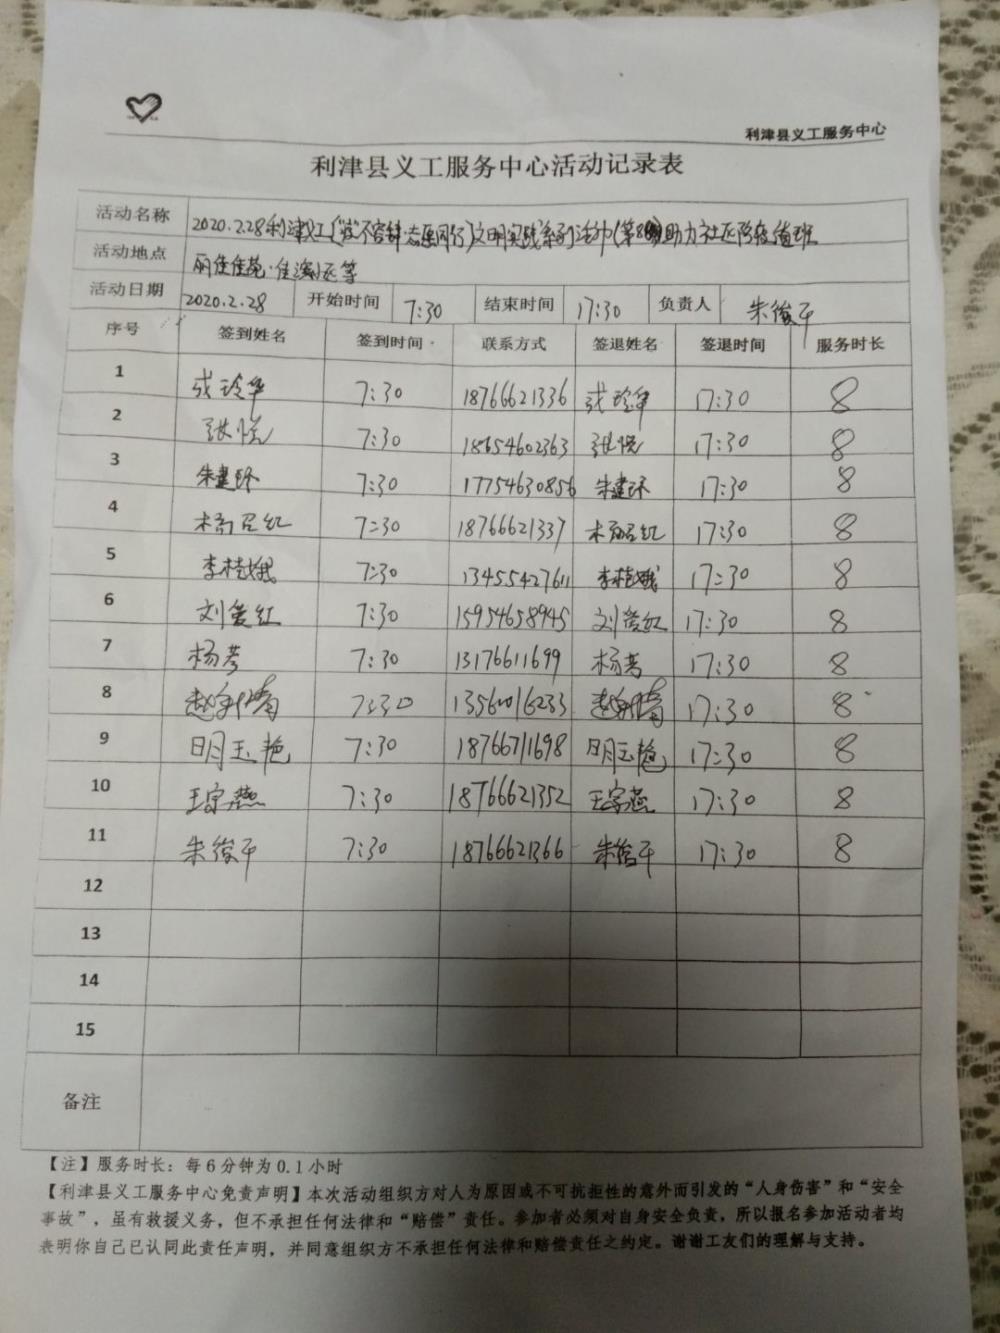 利津县义工服务中心
利津县义工服务中心活动记录表
活动名称 2020.2.28利津义工(责不容辞·志愿同行)文明实践系列活动(第8期)助力社区防疫值班
活动地点 丽佳佳苑·佳滨小区等
活动日期 2020.2.28 开始时间 7:30 结束时间 17:30 负责人 朱俊平
序号 签到姓名 签到时间 联系方式 签退姓名 签退时间 服务时长
1 7:30 18766621336 17:30 8
2 张悦 7:30 18654602363 张悦 17:30 8
3 朱建环 7:30 17754630856 朱建环 17:30 8
4 7:30 18766621337 17:30 8
5 李桂娥 7:30 13455427611 李桂娥 17:30 8
6 刘爱红 7:30 15954658945 刘爱红 17:30 8
7 杨芳 7:30 13176611699 杨芳 17:30 8
8 7:30 13561016233 17:30 8
9 明玉艳 7:30 18766711698 明玉艳 17:30 8
10 王字燕 7:30 18766621352 王字燕 17:30 8
11 朱俊平 7:30 18766621366 朱俊平 17:30 8
12
13
14
15
备注
【注】服务时长：每6分钟为0.1小时
【利津县义工服务中心免责声明】本次活动组织方对人为原因或不可抗拒性的意外而引发的“人身伤害”和“安全
事故”，虽有救援义务，但不承担任何法律和“赔偿”责任。参加者必须对自身安全负责，所以报名参加活动者均
表明你自己已认同此责任声明，并同意组织方不承担任何法律和赔偿责任之约定。谢谢工友们的理解与支持。